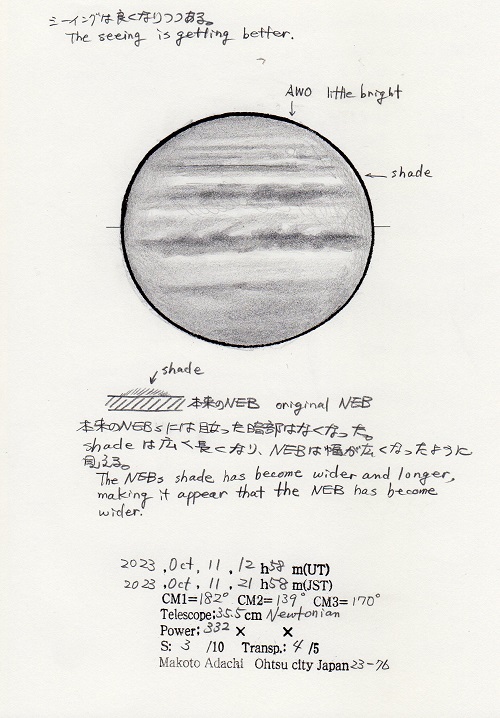 シーイングは良くなりつつある。
The seeing is getting better.
AWO little bright
shade
shade
本来のNEB original NEB
本来のNEBsには目立った暗部はなくなった。
shadeは広く長くなり、NEBは幅が広くなったように
見える。
The NEBs shade has become wider and longer,
making it appear that the NEB has become
wider.
2023 , Oct , 11 , 12 h 58 m(UT)
2023 , Oct , 11 , 21 h 58 m(JST)
CM1= 182° CM2= 139° CM3= 170°
Telescope: 35.5 cm Newtonian
Power: 332 × ×
S: 3 /10 Transp.: 4 /5
Makoto Adachi Ohtsu city Japan 23-76